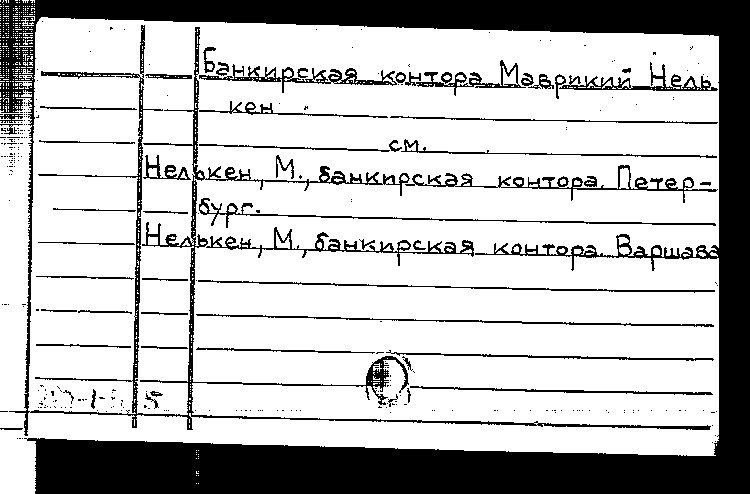 Банкирская контора Маврикий Нель
кен
см.
Нелькен, М., банкирская контора. Петер-
бург.
Нелькен, М., банкирская контора. Варшава
5